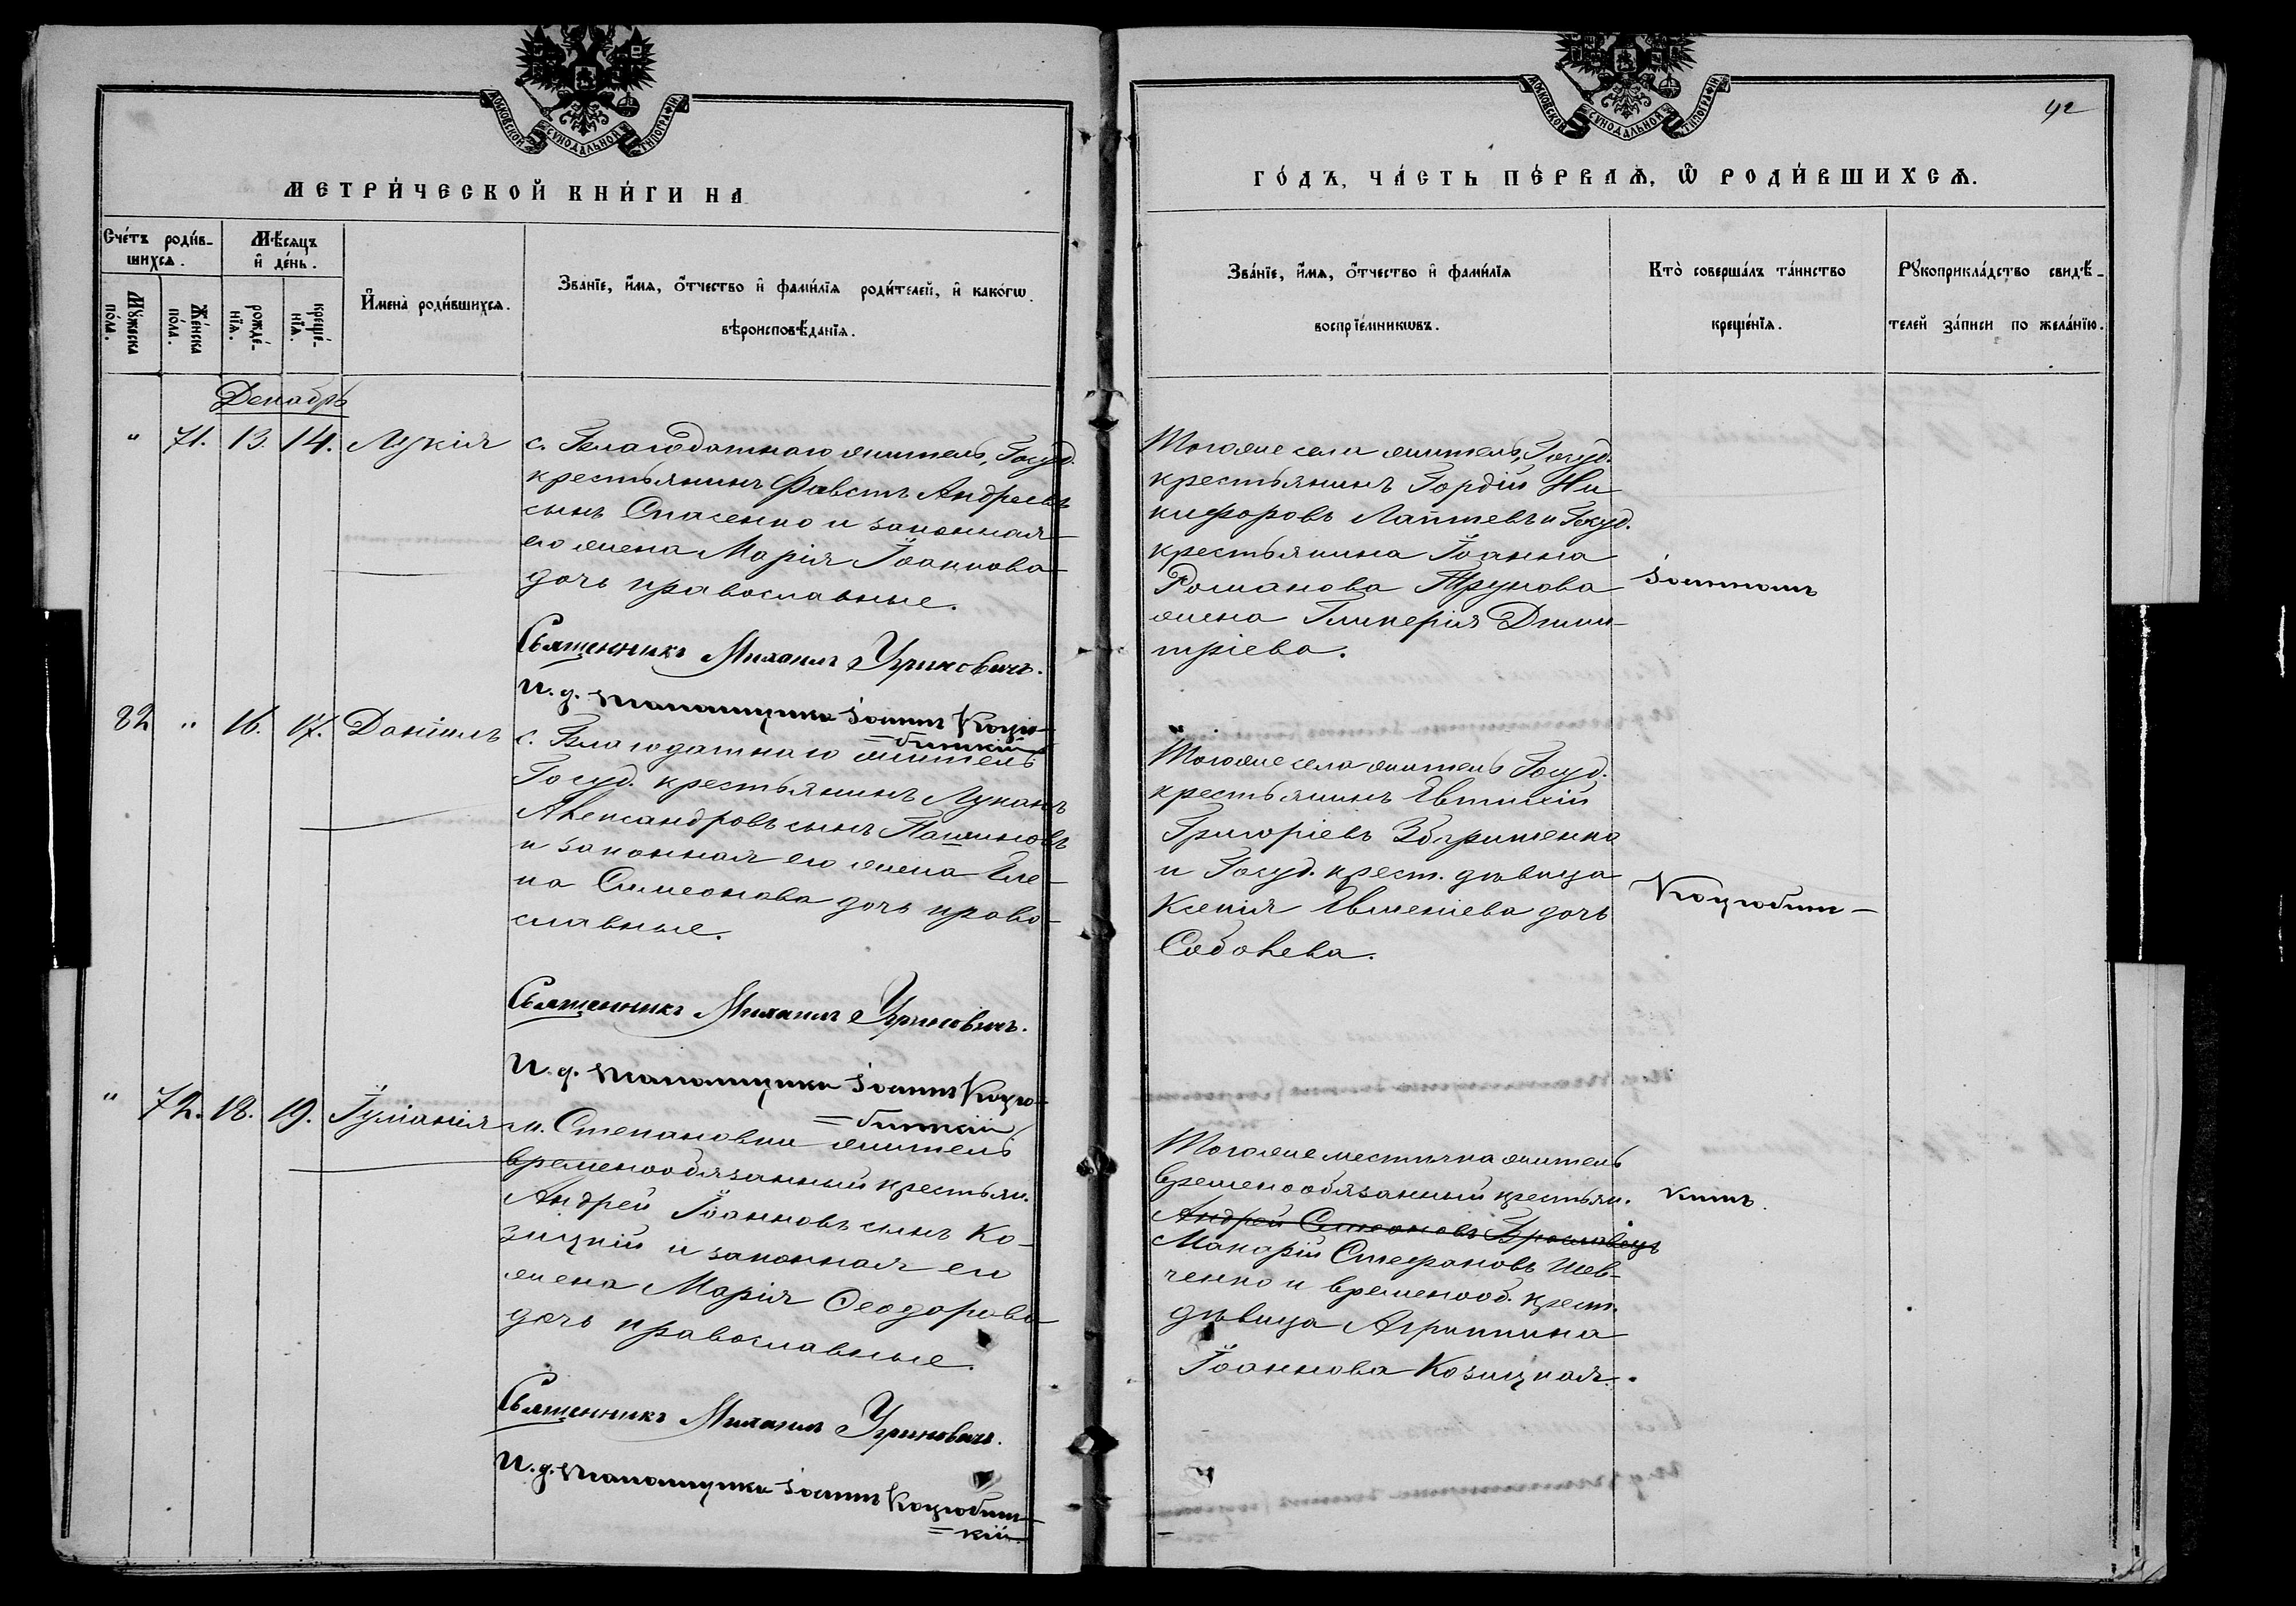 МОСКОВСКОЙ СѴНОДАЛЬНОЙ ТИПОГРАФІИ
МЕТРИ́ЧЕСКОЙ КНИ́ГИ НА
Сче́тъ роди́в-
шихсѧ.
Мѣ́сѧцъ
и҆ де́нь.
Мꙋ́жеска
по́ла.
Же́нска
по́ла.
рожде́-
нїѧ.
креще́-
нїѧ.
И҆мена̀ роди́вшихсѧ.
Зва́нїе, и҆́мѧ, о҆́тчество и҆ фамѝлїѧ роди́телей, и҆ како́гѡ
вѣроисповѣ́данїѧ.
Декабрь
" 71. 13. 14. Лукія
с. Благодатнаго житель, Госуд.
крестьянинъ Фавстъ Андреевъ
сынъ Спасенко и законная
его жена Марія Іоаннова
дочь православные.
Священникъ Михаилъ Угриновичъ.
И. д. псаломщика Іоаннъ Коцю-
=бинскій
82 " 16. 17. Даніилъ
с. Благодатнаго житель
Госуд. крестьянинъ Лукіанъ
Александровъ сынъ Пашиновъ
и законная его жена Еле-
на Симеонова дочь право-
славные.
Священникъ Михаилъ Угриновичъ.
И. д. псаломщика Іоаннъ Коцю-
=бинскій
" 72. 18. 19. Іуліанія
м. Степановки житель
временнообязанный крестьян.
Андрей Іоанновъ сынъ Ко-
зицкій и законная его
жена Марія Ѳеодорова
дочь православные.
Священникъ Михаилъ Угриновичъ.
И. д. псаломщика Іоаннъ Коцюбин-
=скій
МОСКОВСКОЙ СѴНОДАЛЬНОЙ ТИПОГРАФІИ
42
ГО́ДЪ, ЧА́СТЬ ПЕ́РВАѦ, Ѡ҆ РОДИ́ВШИХСѦ.
Зва́нїе, и҆́мѧ, о҆́тчество и҆ фами́лїѧ
воспрїе́мникѡвъ.
Кто̀ соверша́лъ та́инство
креще́нїѧ.
Рꙋкоприкла́дство свидѣ́-
телей за́писи по жела́нїю.
Тогоже села житель, Госуд.
крестьянинъ Гордій Ни-
кифоровъ Лаптевъ и Госуд.
крестьянина Іоанна
Романова Трунова
жена Гликерія Дими-
тріева.
Іоанномъ
Тогоже села житель Госуд.
крестьянинъ Евтихій
Григоріевъ
и Госуд. крест. дѣвица
Ксенія Евменіева дочь
Соболева.
Коцюбин-
Тогоже мѣстечка житель
временообязанный крестьян.
Андрей Симеоновъ
Макарій Стефановъ Шев-
ченко и временооб. крест.
дѣвица Агриппина
Іоаннова Козицкая.